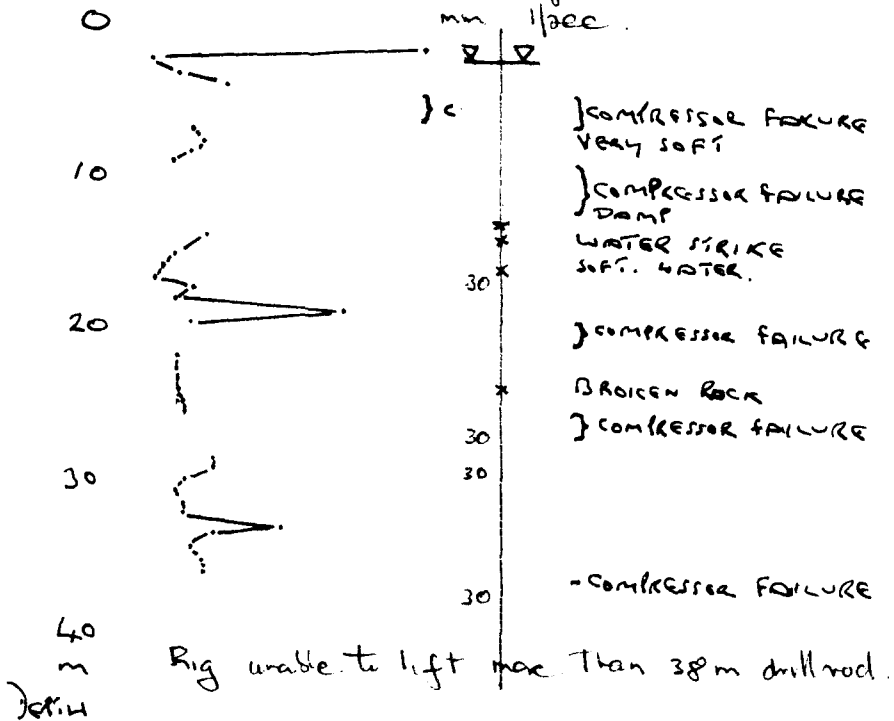 0
mm 1/sec.
} c
} COMPRESSOR FAILURE
VERY SOFT
10
} COMPRESSOR FAILURE
DAMP
WATER STRIKE
SOFT. WATER.
30
20
} COMPRESSOR FAILURE
BROKEN ROCK
} COMPRESSOR FAILURE
30
30
30
- COMPRESSOR FAILURE
30
40
m
Rig unable to lift more than 38m drill rod.
DEPTH